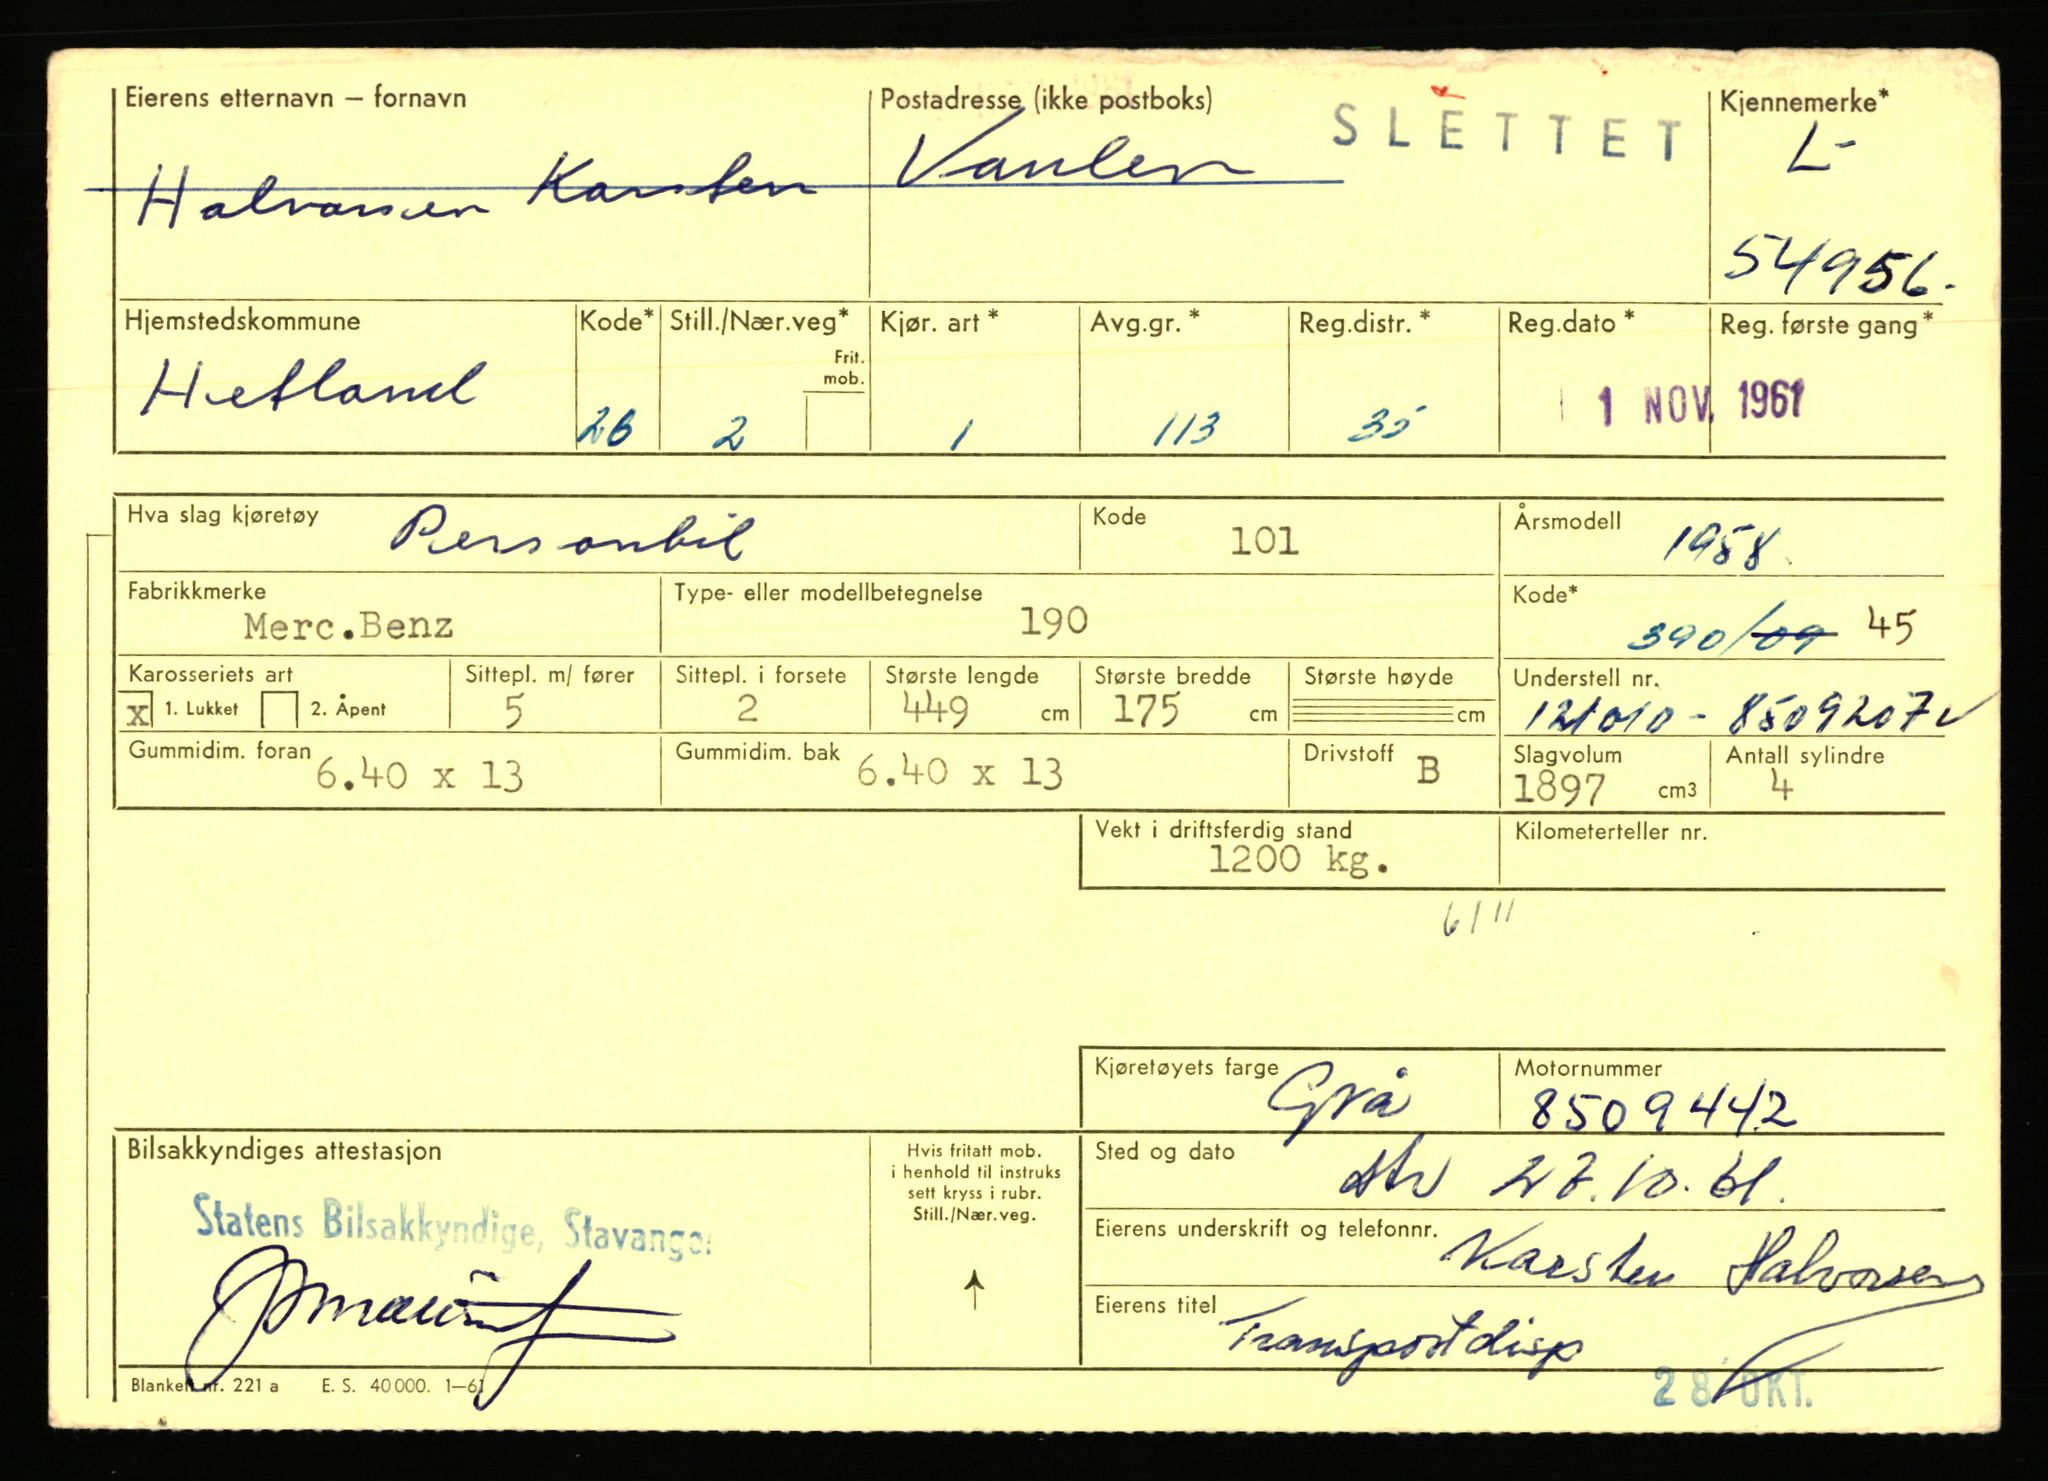 Eierens etternavn – fornavn
Halvorsen Karsten
Postadresse (ikke postboks)
Vaulen
SLETTET
Kjennemerke*
L-
54956.
Hjemstedskommune
Hetland
Kode*
26
Still./Nær.veg*
2
Frit.
mob.
Kjør. art *
1
Avg.gr. *
113
Reg.distr. *
35
Reg.dato *
Reg. første gang*
1 NOV. 1961
Hva slag kjøretøy
Personbil
Kode
101
Årsmodell
1958
Fabrikkmerke
Merc.Benz
Type- eller modellbetegnelse
190
Kode*
390/09 45
Karosseriets art
x 1. Lukket 2. Åpent
Sittepl. m/ fører
5
Sittepl. i forsete
2
Største lengde
449 cm
Største bredde
175 cm
Største høyde
cm
Understell nr.
121010 - 8509207
Gummidim. foran
6.40 x 13
Gummidim. bak
6.40 x 13
Drivstoff
B
Slagvolum
1897 cm3
Antall sylindre
4
Vekt i driftsferdig stand
1200 kg.
Kilometerteller nr.
6/11
Kjøretøyets farge
Grå
Motornummer
8509442
Bilsakkyndiges attestasjon
Statens Bilsakkyndige, Stavanger
Hvis fritatt mob.
i henhold til instruks
sett kryss i rubr.
Still./Nær.veg.
Sted og dato
27.10.61.
Eierens underskrift og telefonnr.
Karsten Halvorsen
Eierens titel
Transportdisp
28 OKT.
Blankett nr. 221 a E. S. 40 000. 1–61